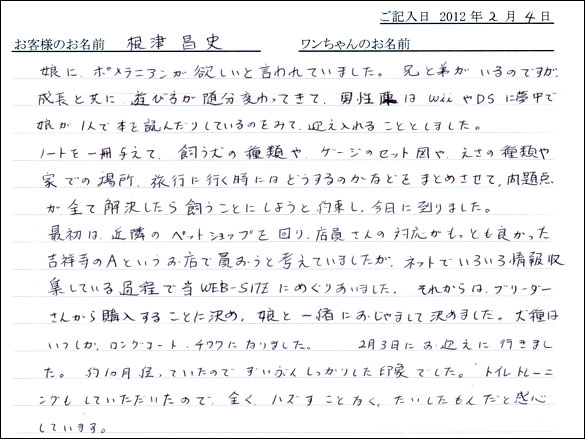 ご記入日 2012 年 2 月 4 日
お客様のお名前 根津 昌史 ワンちゃんのお名前
娘に、ポメラニアンが欲しいと言われていました。兄と弟がいるのですが、
成長と共に、遊び方が随分変わってきて、男性陣はWiiやDSに夢中で
娘が1人で本を読んだりしているのをみて、迎え入れることとしました。
ノートを一冊与えて、飼う犬の種類や、ゲージのセット図や、えさの種類や
家での場所、旅行に行く時にはどうするのかなどをまとめさせて、問題点
が全て解決したら飼うことにしようと約束し、今日に到りました。
最初は、近隣のペットショップを回り、店員さんの対応がもっとも良かった
吉祥寺のAというお店で買おうと考えていましたが、ネットでいろいろ情報収
集している過程で当WEB-SITEにめぐりあいました。それからは、ブリーダー
さんから購入することに決め、娘と一緒におじゃまして決めました。犬種は
いつしか、ロングコート・チワワになりました。 2月3日にお迎えに行きまし
た。約1ヵ月位、っていたのでずいぶんしっかりした印象でした。トイレトレーニ
ングもしていただいたので、全く、ハズすことなく、たいしたもんだと感心
しています。